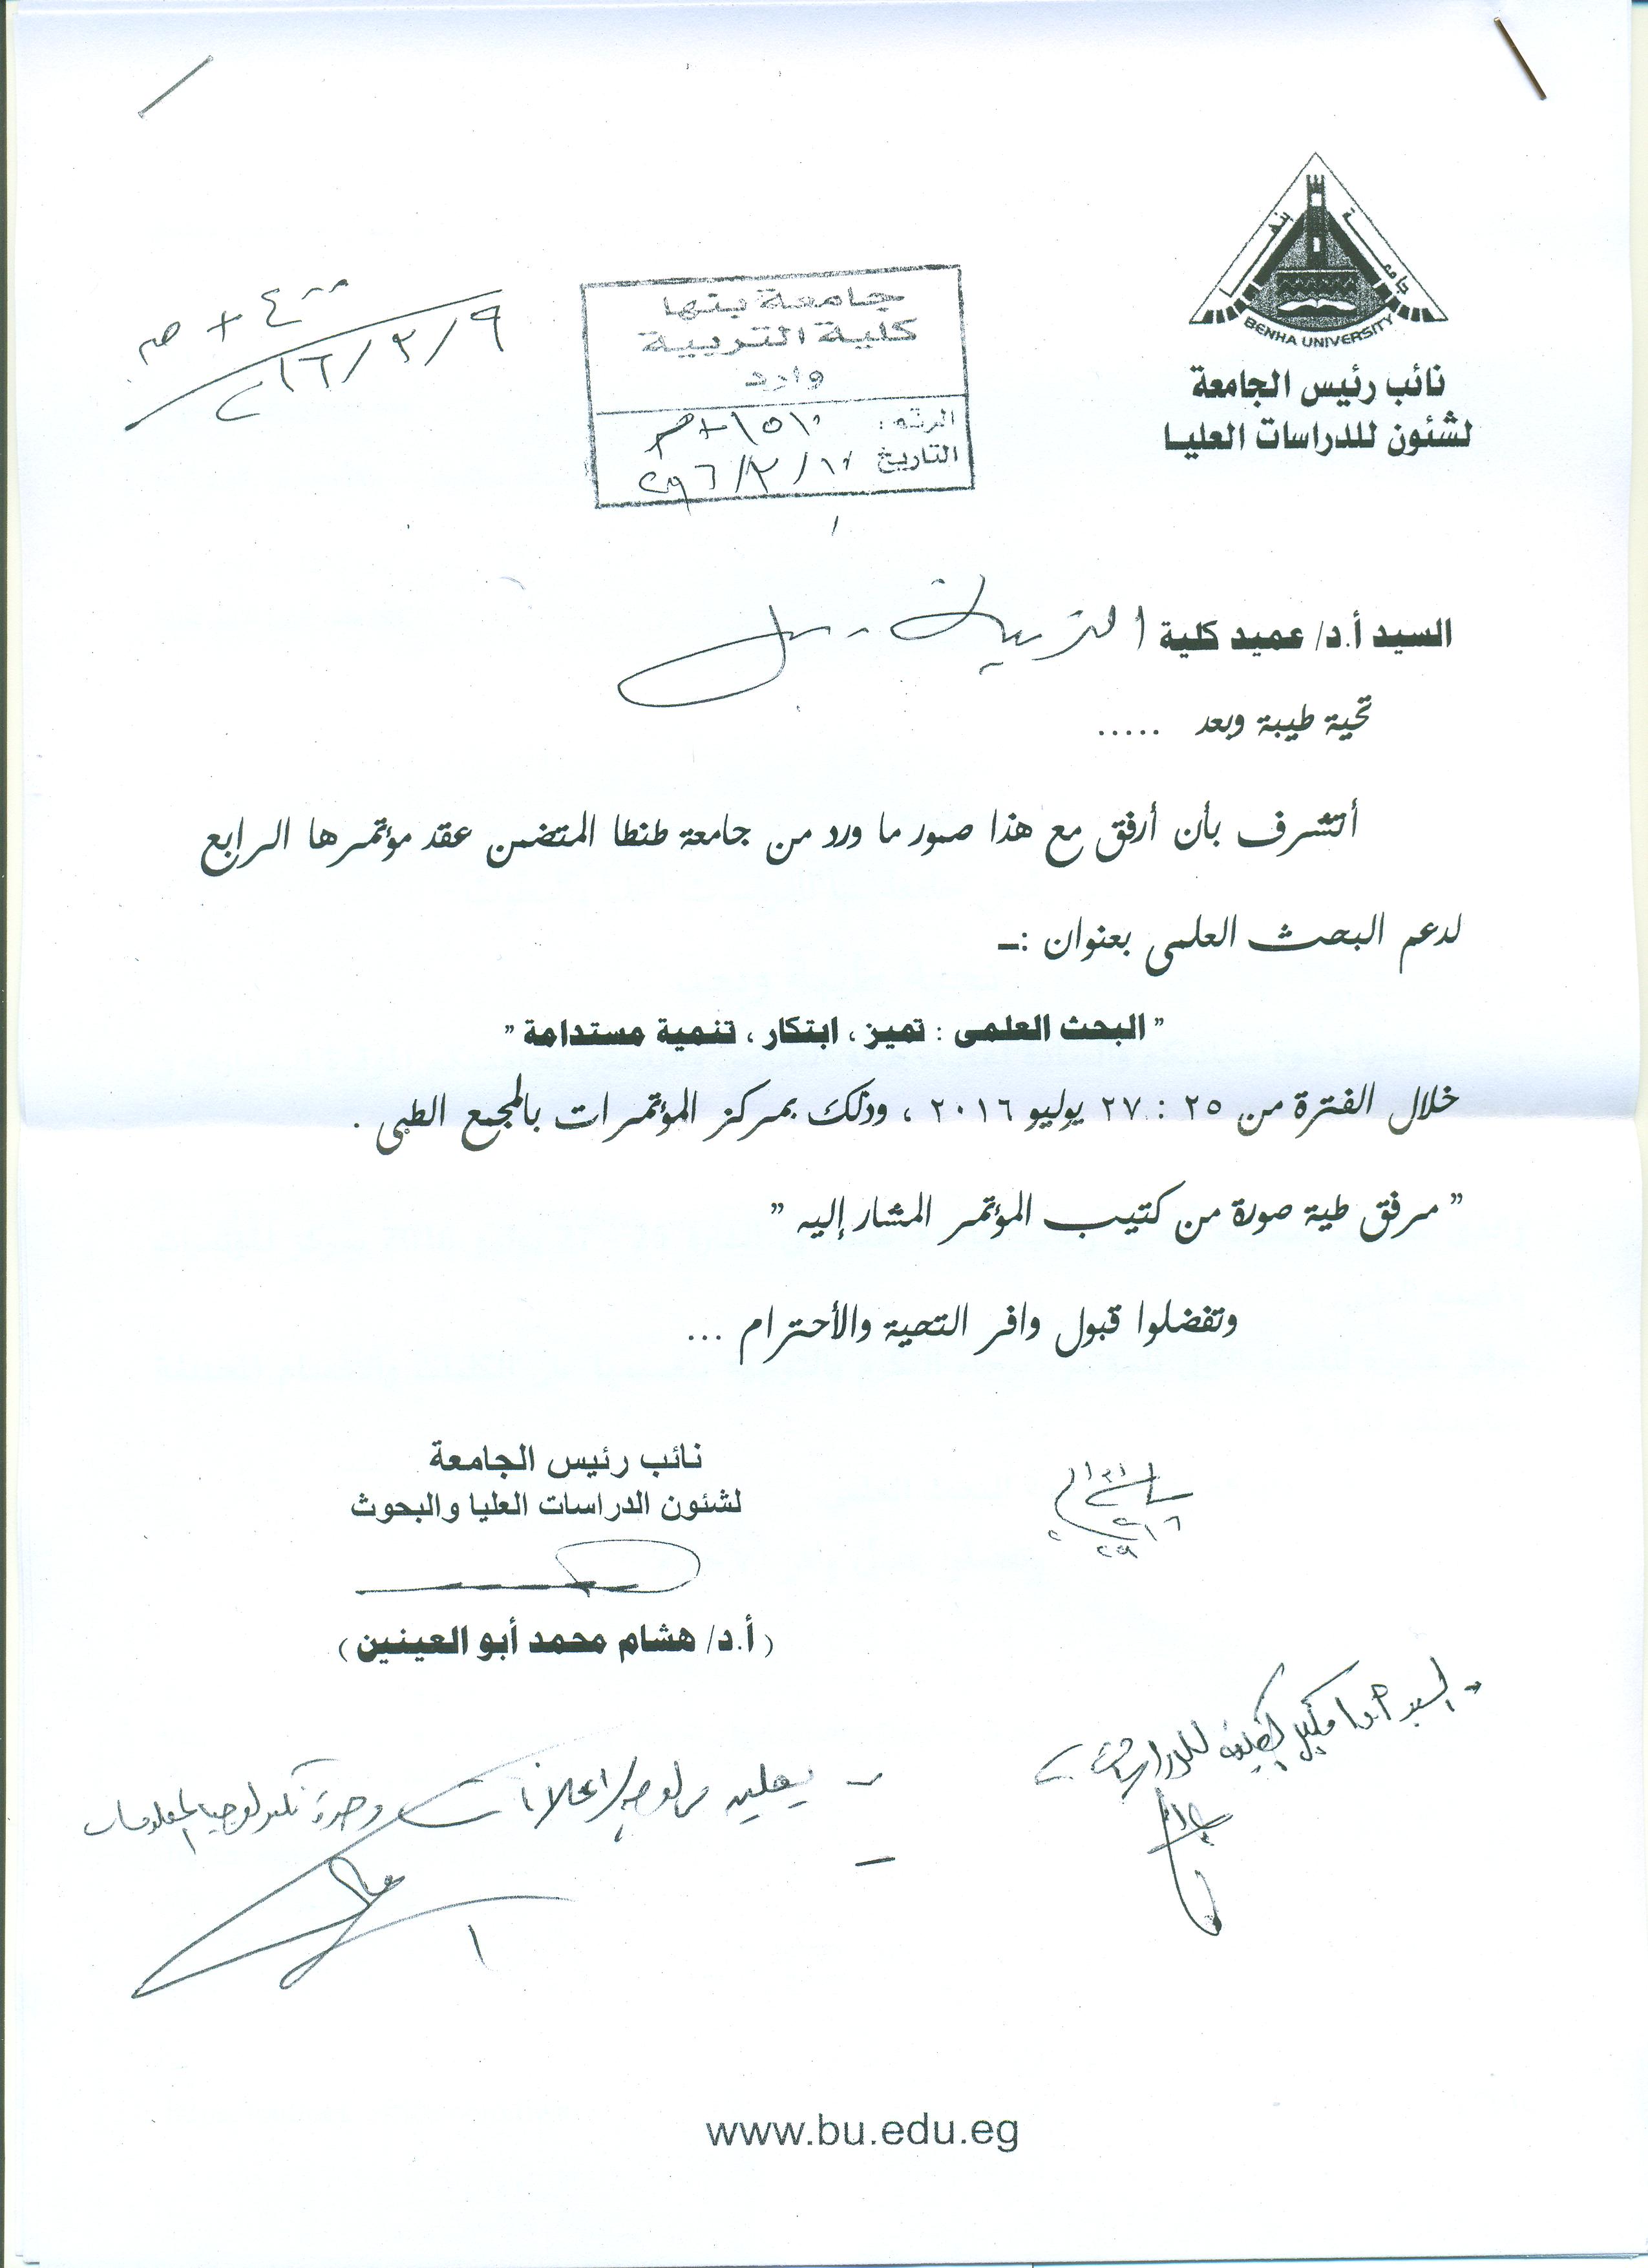 جامعة بنها
BENHA UNIVERSITY
نائب رئيس الجامعة
لشئون للدراسات العليا
٤٠٠
٢٠١٦/٣/٩
جامعة بنها
كلية التربية
وارد
الرقم :
التاريخ ٢٠١٦/٣/١٠
السيد أ.د/ عميد كلية التربية
تحية طيبة وبعد .....
أتشرف بأن أرفق مع هذا صور ما ورد من جامعة طنطا المتضمن عقد مؤتمرها الرابع
لدعم البحث العلمى بعنوان :ـ
" البحث العلمى : تميز ، ابتكار ، تنمية مستدامة "
خلال الفترة من ٢٥ : ٢٧ يوليو ٢٠١٦ ، وذلك بمركز المؤتمرات بالمجمع الطبى .
" مرفق طية صورة من كتيب المؤتمر المشار إليه "
وتفضلوا قبول وافر التحية والأحترام ...
نائب رئيس الجامعة
لشئون الدراسات العليا والبحوث
( أ.د/ هشام محمد أبو العينين )
السيد أ.د/ وكيل الكلية للدراسات
- يعلن بلوحة الإعلانات
وحدة تكنولوجيا المعلومات
www.bu.edu.eg